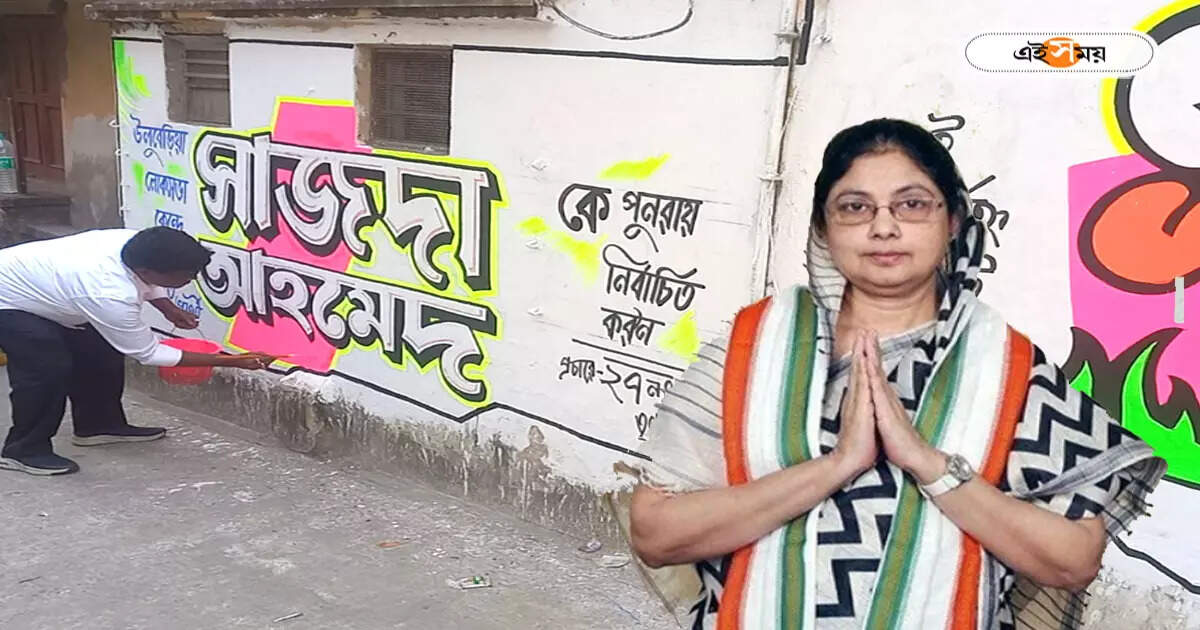 এই সময়
উলুবেড়িয়া
লোকসভা
কেন্দ্রে
সাজদা
আহমেদ
কে পুনরায়
নির্বাচিত
করুন
প্রচারে-২৭ নং